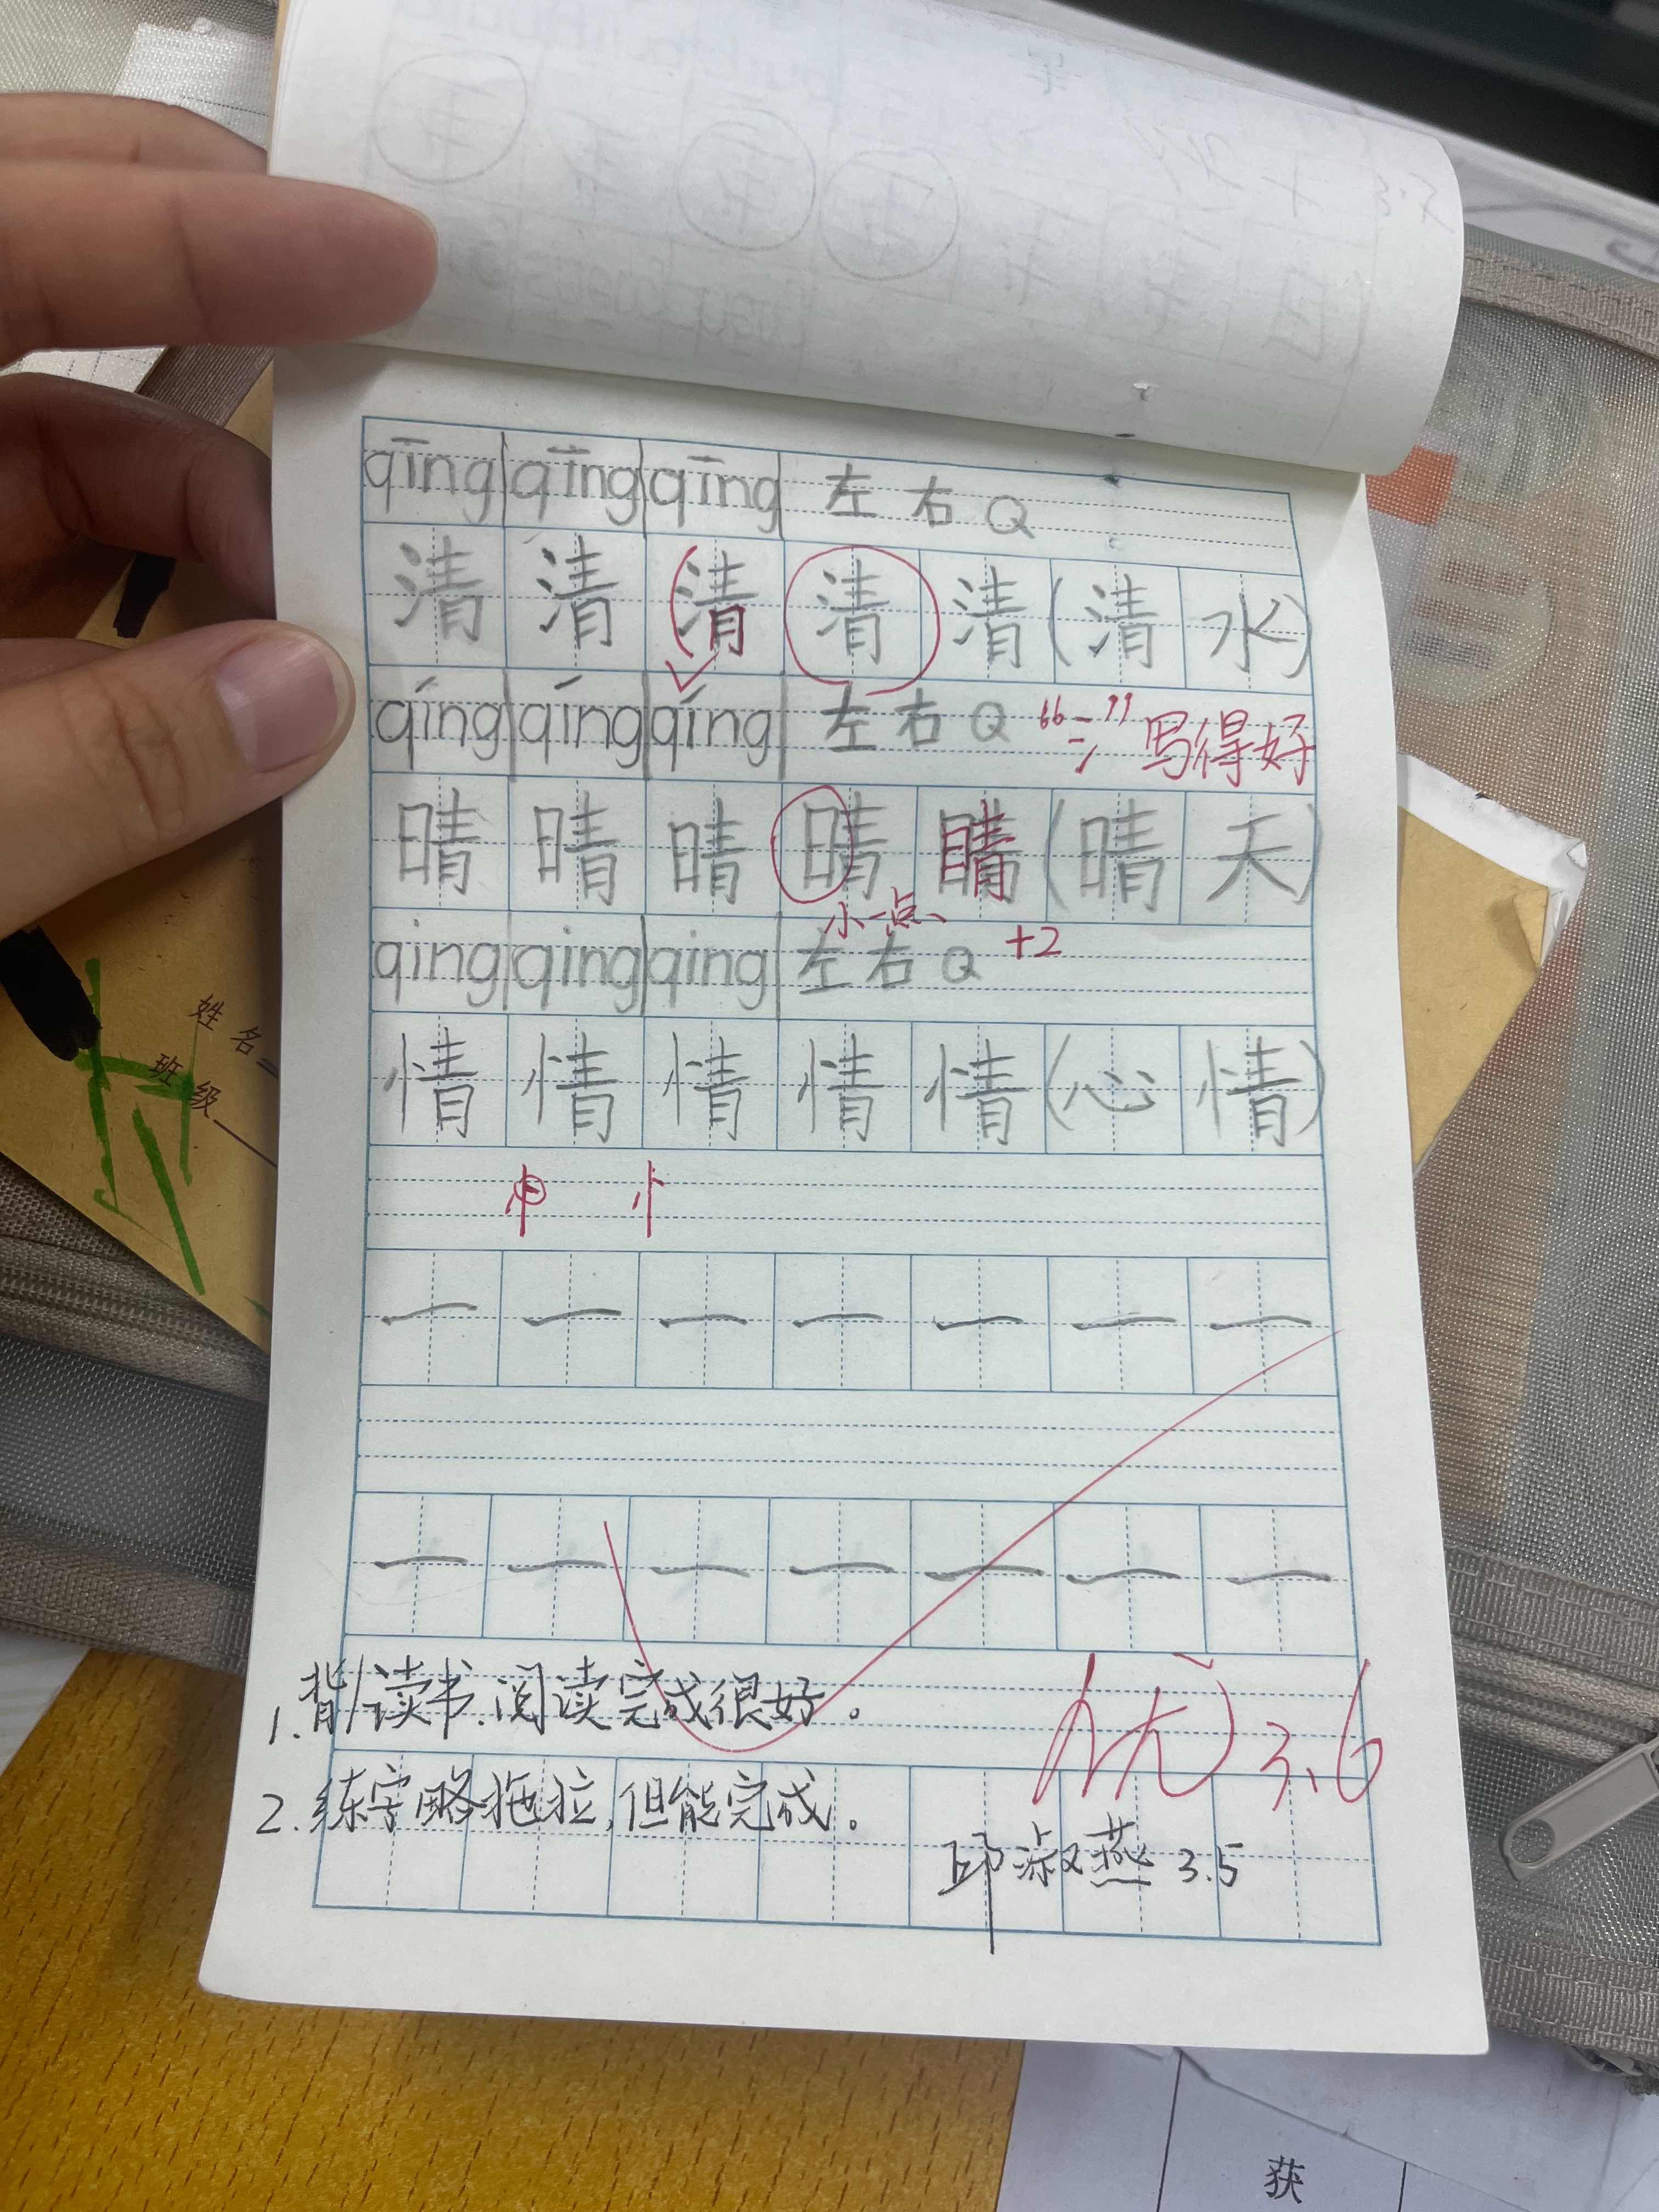 qīng qīng qīng 左右 Q
清 清 清 清 清 (清 水)
qíng qíng qíng 左右 Q “氵” 写得好
晴 晴 晴 晴 睛 (晴 天)
小一点、
qing qing qing 左右 Q +2
情 情 情 情 情 (心 情)
忄
一 一 一 一 一 一 一
一 一 一 一 一 一 一
1. 背读书、阅读完成很好。
优 3.6
2. 练字略拖拉,但能完成。
邱淑燕 3.5
姓名
班级
获